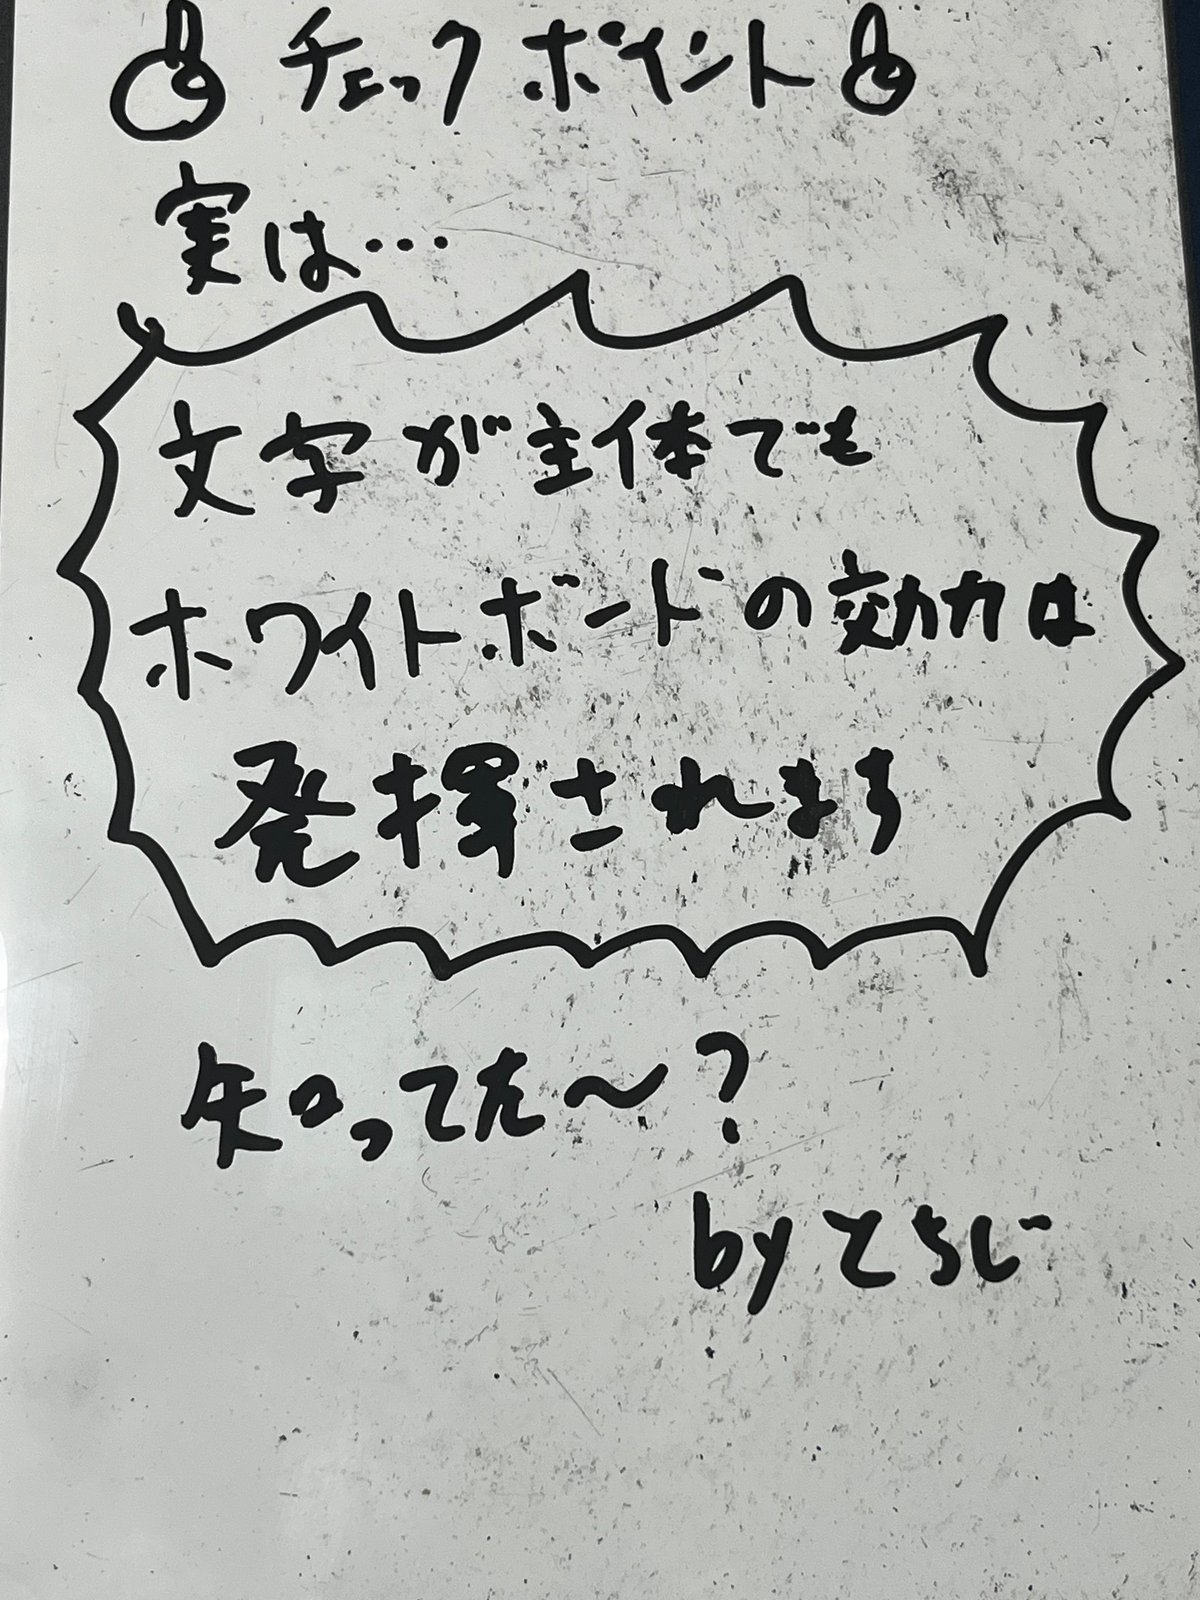 チェックポイント
実は…
文字が主体でも
ホワイトボードの効力は
発揮されます
知ってた〜?
byとちじ